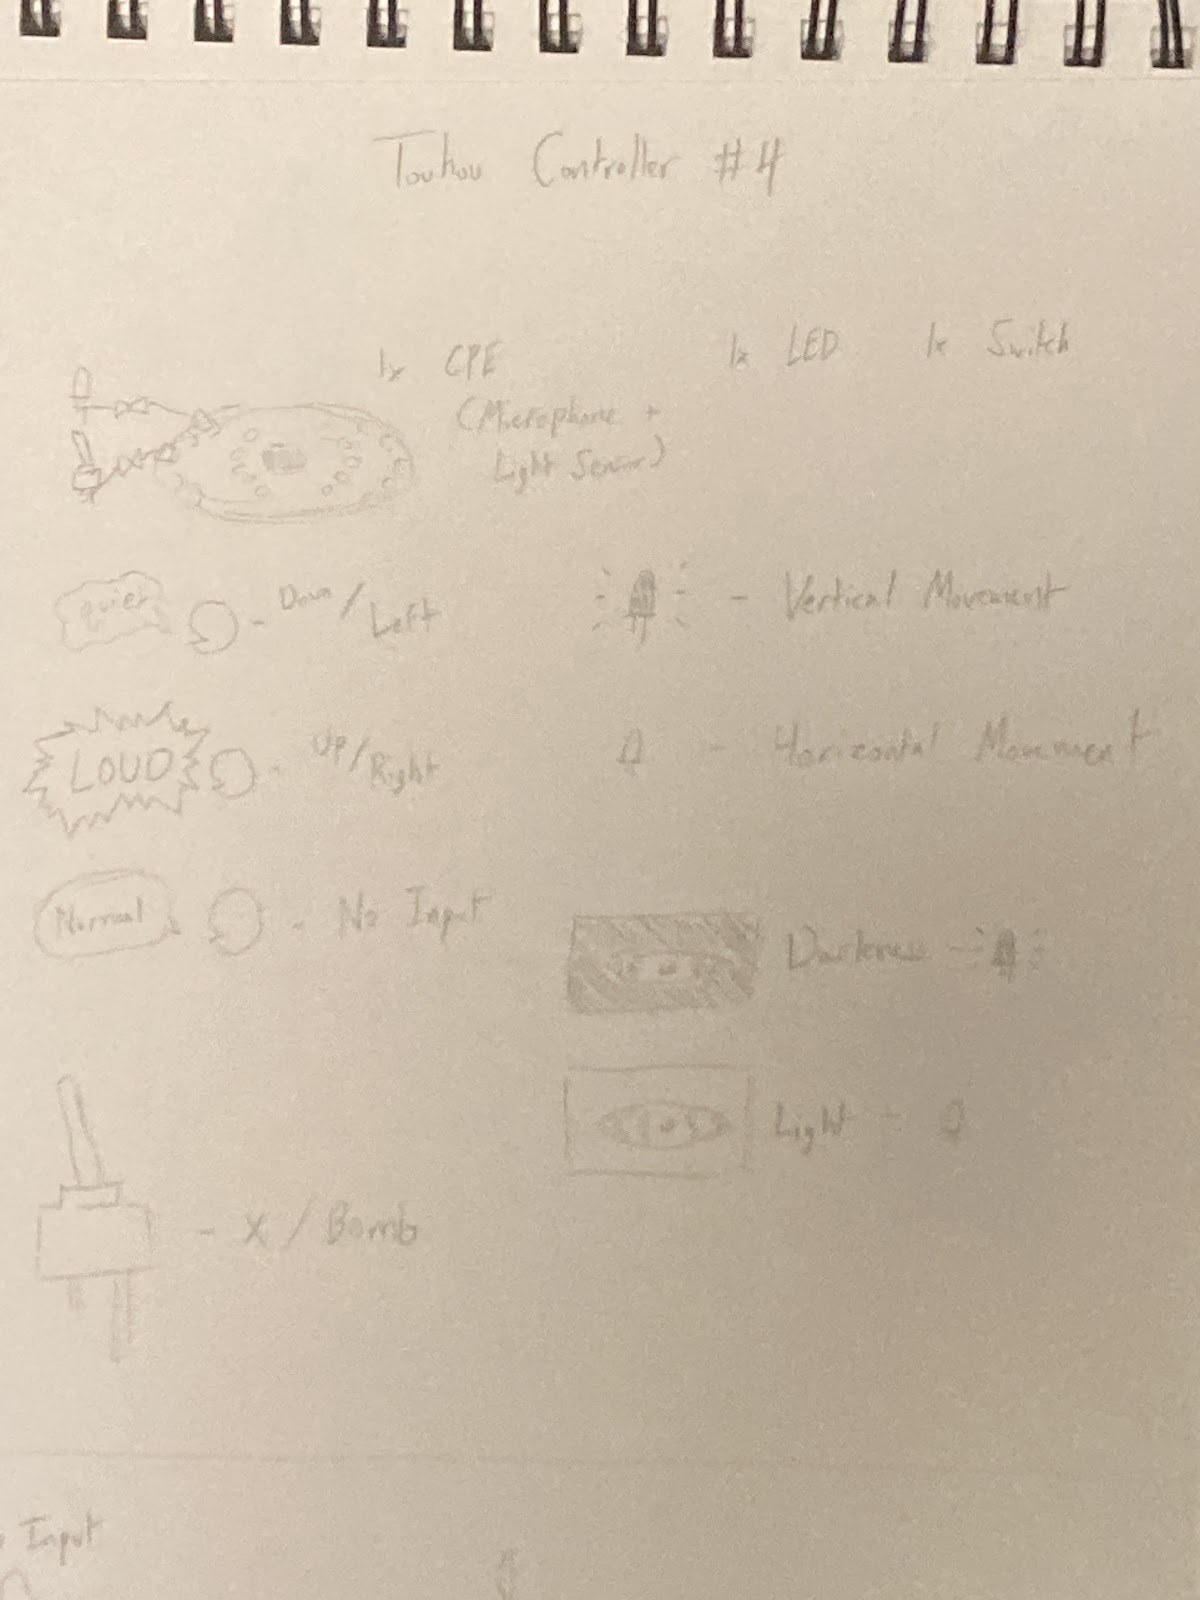 Touhou Controller #4
1x CPE
(Microphone +
Light Sensor)
1x LED
1x Switch
quiet - Down/Left
- Vertical Movement
LOUD - Up/Right
- Horizontal Movement
Normal - No Input
Darkness -
Light -
- X / Bomb
Input